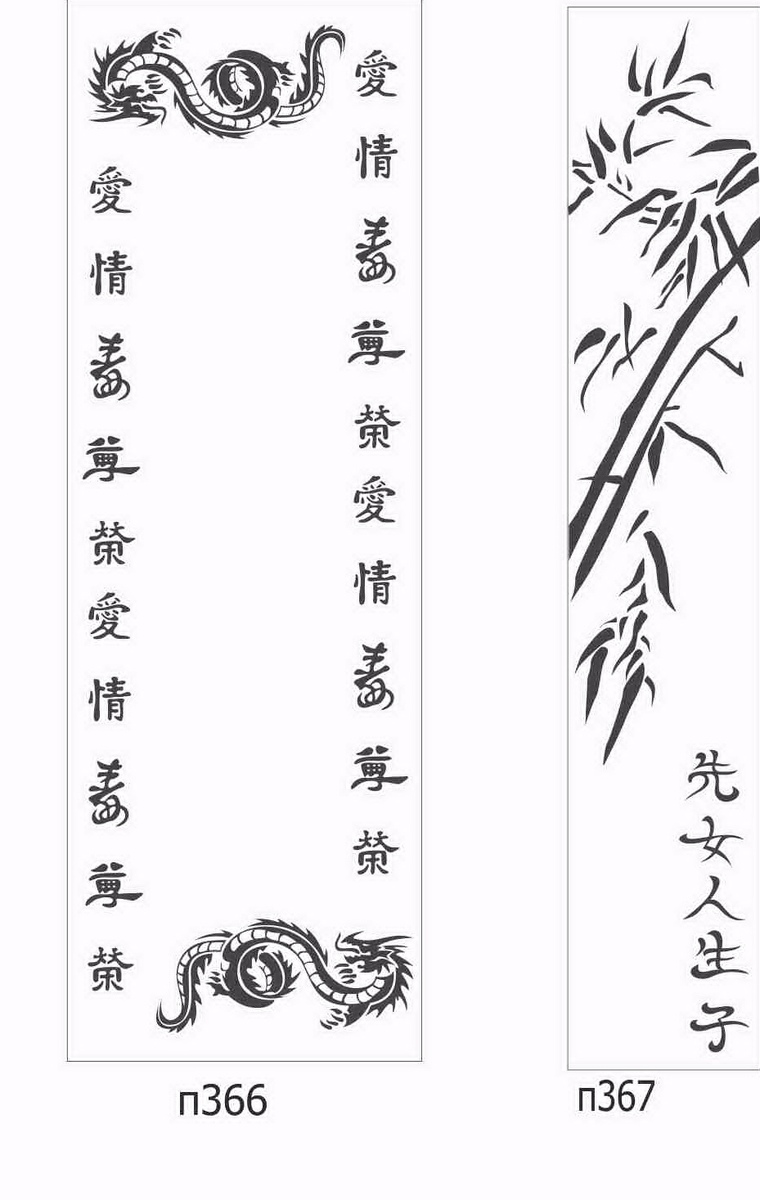 愛情尊榮愛情尊榮
愛情尊榮愛情尊榮
п366
先女人生子
п367